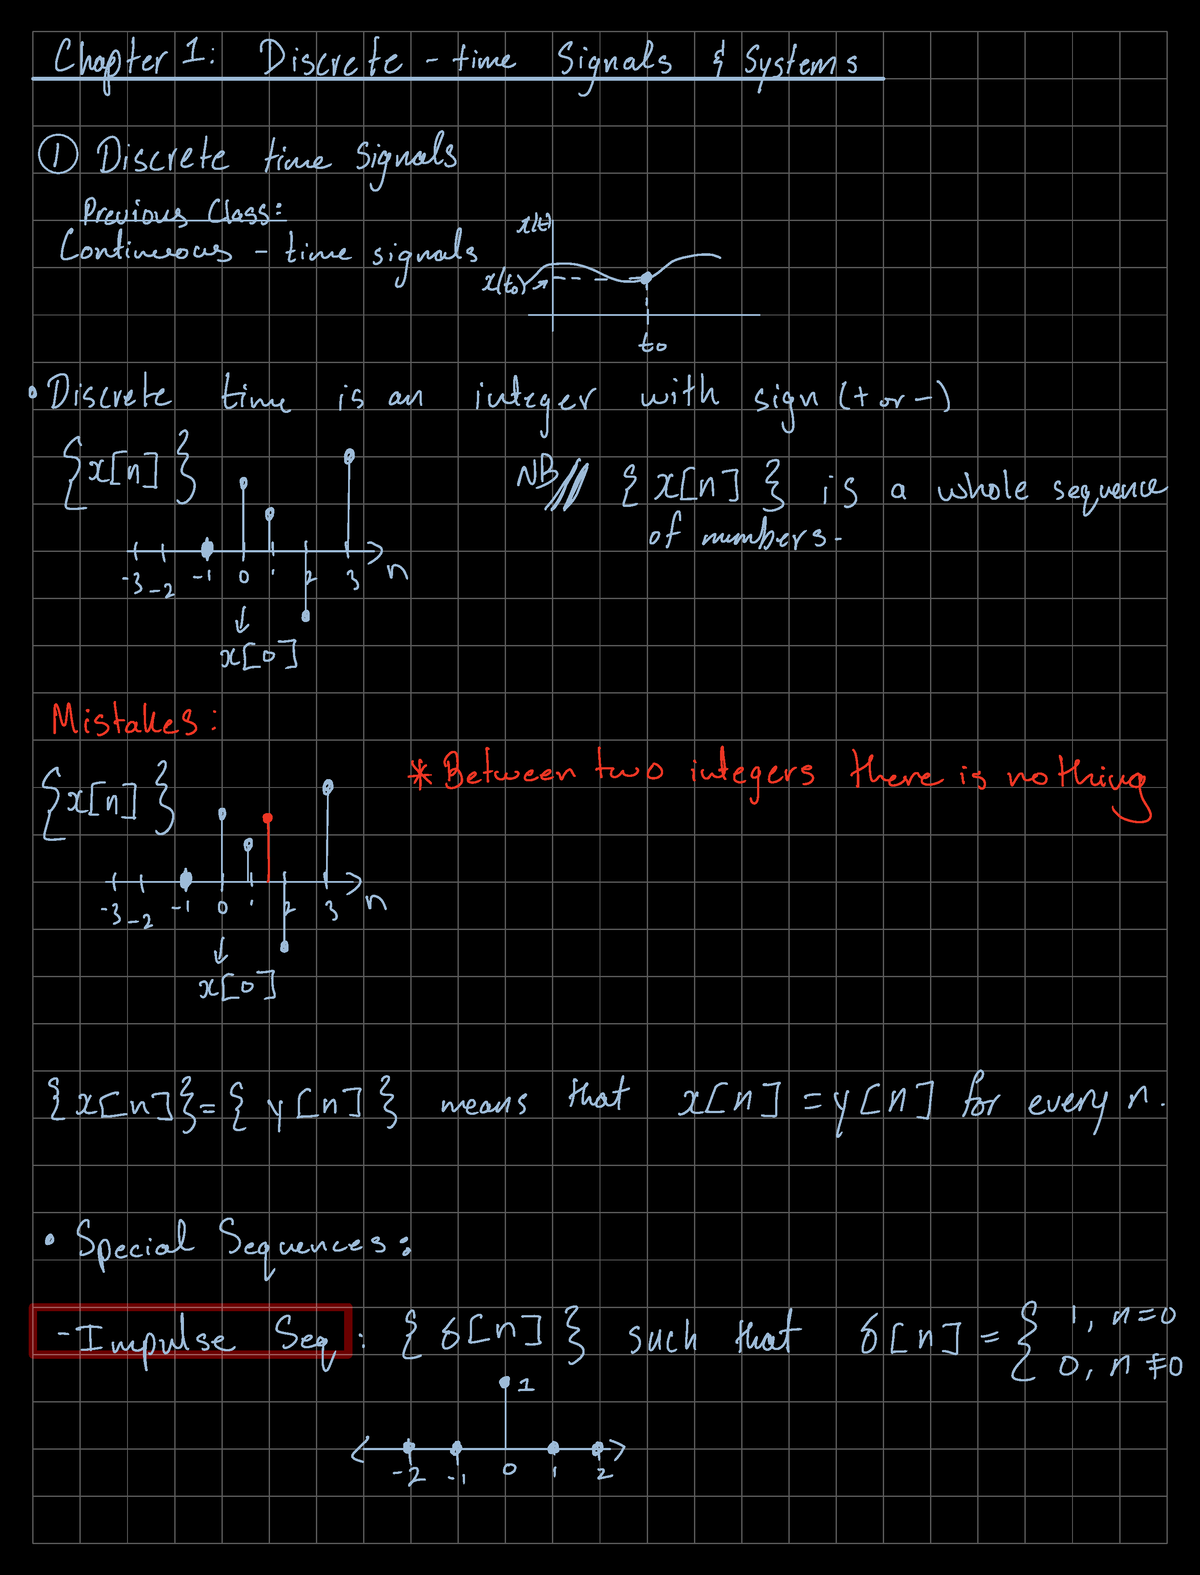 Chapter 1: Discrete - time Signals & Systems
① Discrete time signals
Previous Class:
Continuous - time signals
x(t)
x(t₀)
t₀
• Discrete time is an integer with sign (+ or -)
{x[n]}
NB // {x[n]} is a whole sequence
of numbers.
-3 -2 -1 0 1 2 3 n
↓
x[0]
Mistakes:
* Between two integers there is nothing
{x[n]}
-3 -2 -1 0 1 2 3 n
↓
x[0]
{x[n]} = {y[n]} means that x[n] = y[n] for every n.
• Special Sequences:
- Impulse Seq: {δ[n]} such that δ[n] = { 1, n=0
0, n≠0
1
-2 -1 0 1 2